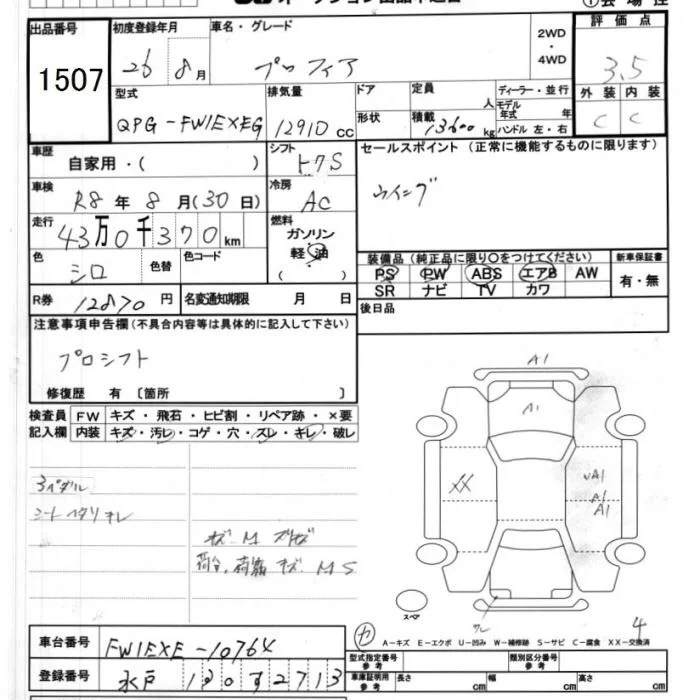 出品番号
1507
初度登録年月
26年8月
車名・グレード
プロフィア
2WD
・
4WD
評価点
3.5
外装 内装
C C
型式
QPG-FW1EXEG
排気量
12910 CC
ドア
形状
定員
人
積載
13600 kg
ディーラー・並行
モデル
年式 年
ハンドル 左・右
車歴
自家用・( )
シフト
トクS
セールスポイント (正常に機能するものに限ります)
ウイング
車検
R8 年 8 月 (30 日)
冷房
AC
走行
43万0千370km
燃料
ガソリン
軽油
( )
色
シロ
色替
色コード
装備品 (純正品に限り○をつけてください)
新車保証書
PS PW ABS エアB AW
SR ナビ TV カワ
有・無
R券 12870 円
名変通知期限 月 日
後日品
注意事項申告欄(不具合内容等は具体的に記入して下さい)
プロシフト
修復歴 有 〔箇所 〕
検査員 FW キズ・飛石・ヒビ割・リペア跡・×要
記入欄 内装 キズ・汚レ・コゲ・穴・スレ・キレ・破レ
3ペダル
シートヘタリキレ
荷台、荷箱 キズ MS
A1
A1
XX
A1
A1
スペア
カ 4
A-キズ E-エクボ U-凹み W-補修跡 S-サビ C-腐食 XX-交換済
車台番号 FW1EXE-10764
登録番号 水戸
型式指定番号
参考
類別区分番号
参考
車庫証明用
参考
長さ cm 幅 cm 高さ cm